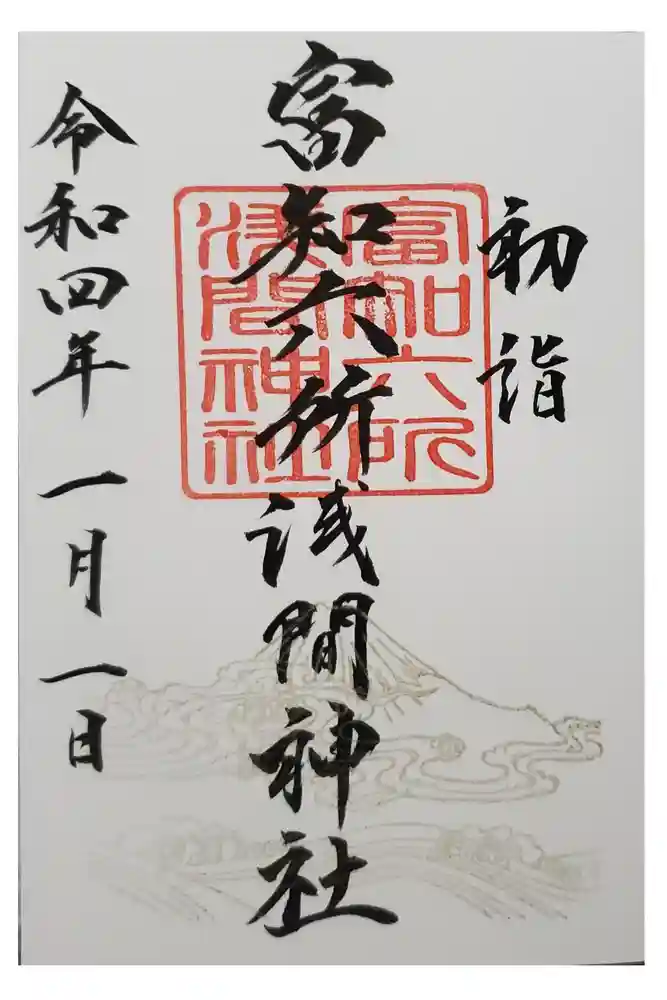 初詣
富知六所浅間神社
富知六所
浅間神社
令和四年 一月一日